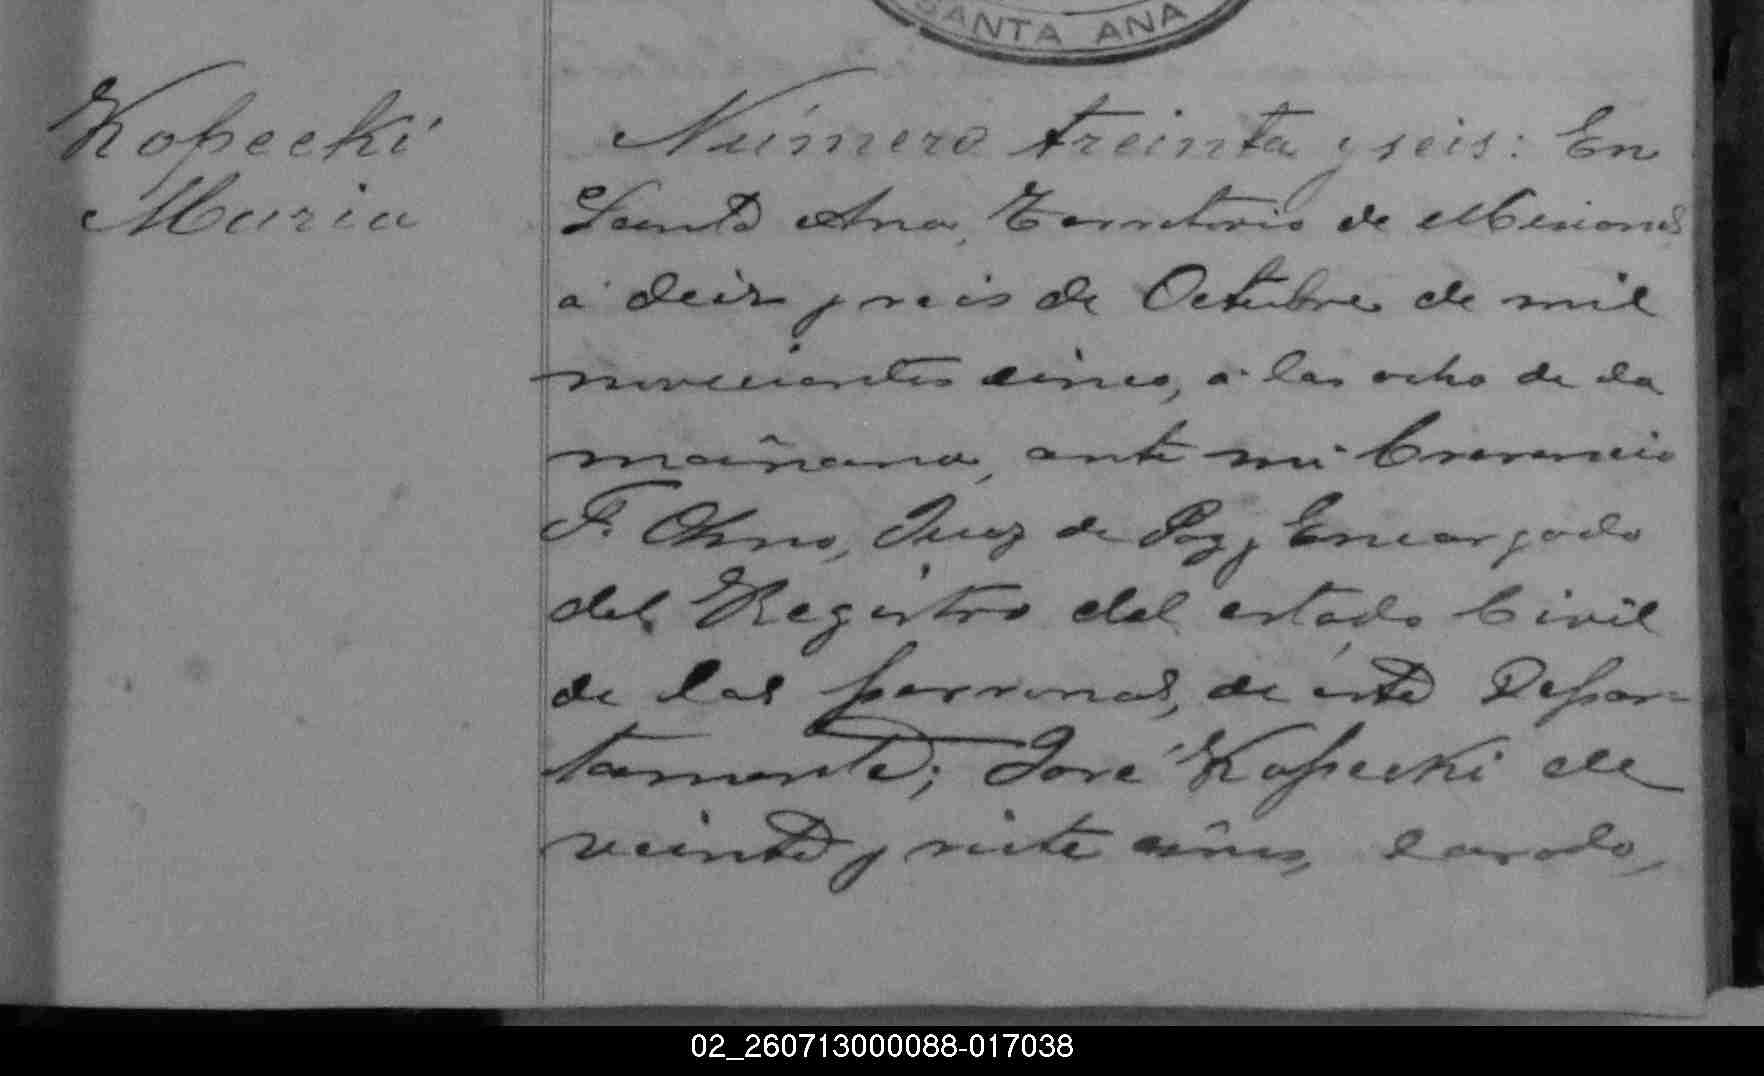 SANTA ANA
Kopecki
Maria
Número treinta y seis: En
Santa Ana, Territorio de Misiones
á deiz y seis de Octubre de mil
novecientos cinco, á las ocho de la
mañana, ante mi
F. Juez de Paz y Encargado
del Registro del estado Civil
de las personas, de éste Depar-
tamento; José Kopecki de
veinte y siete años, casado,
02_260713000088-017038